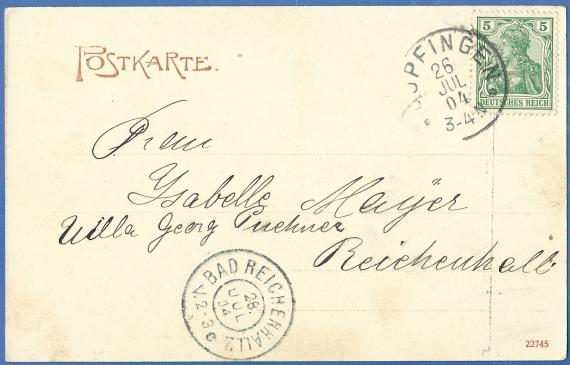 POSTKARTE.
5 5
DEUTSCHES REICH
OPFINGEN
26
JUL
04
3-4N
Frau
Isabelle Mayer
Villa Georg Puchner
Reichenhall
BAD REICHENHALL 2.
28.
JUL
04
V.2-3
22745